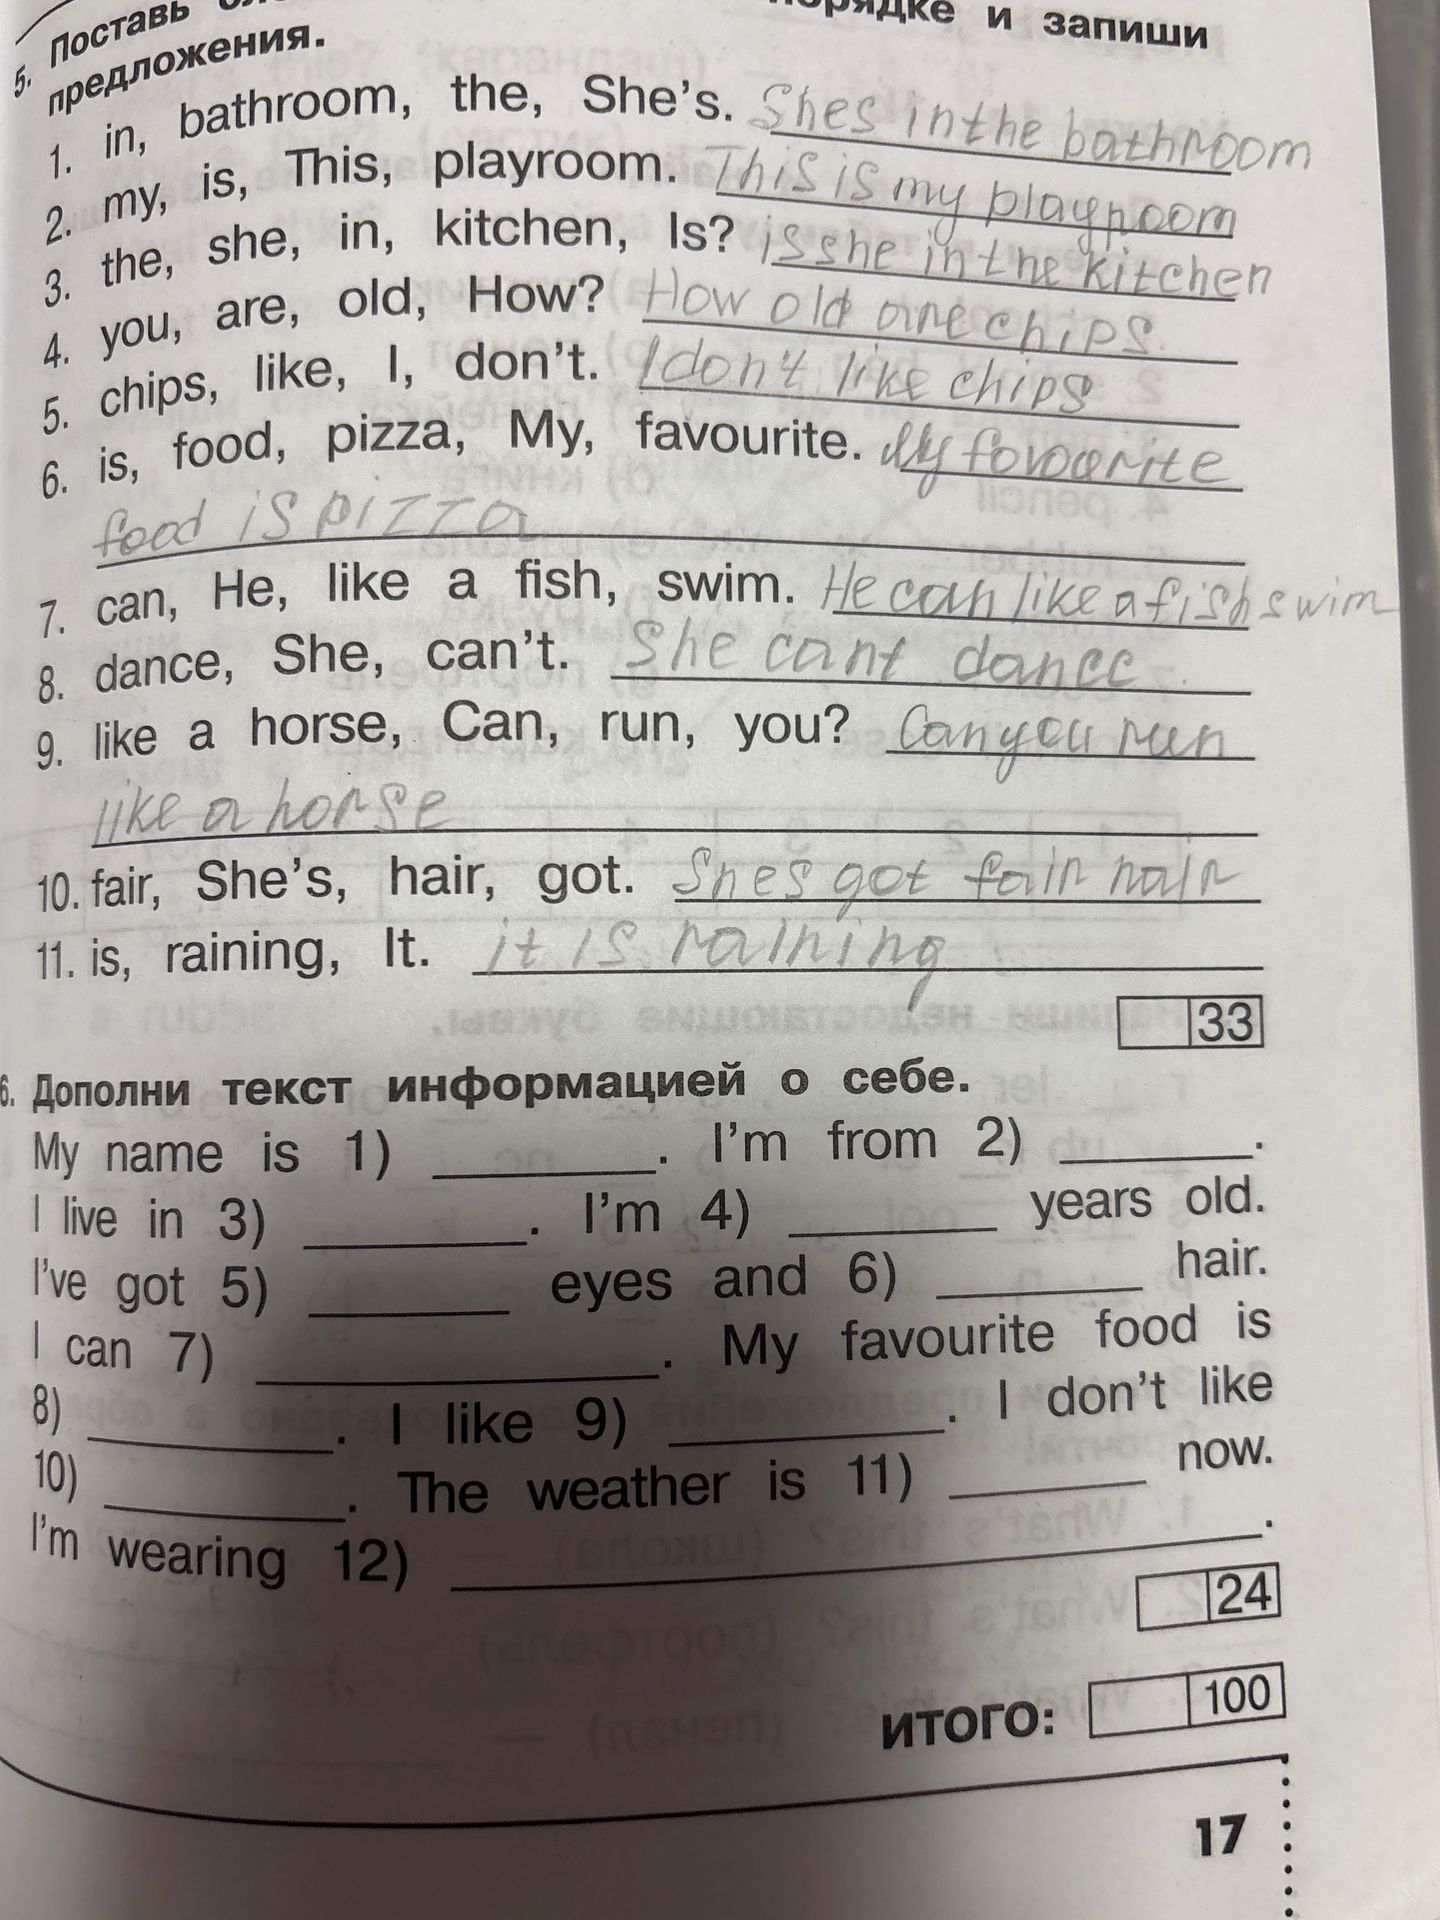 5. Поставь порядке и запиши
предложения.
1. in, bathroom, the, She's. Shes in the bathroom
2. my, is, This, playroom. This is my playroom
3. the, she, in, kitchen, Is? is she in the kitchen
4. you, are, old, How? How old are chips
5. chips, like, I, don't. I don't like chips
6. is, food, pizza, My, favourite. My favourite
food is pizza
7. can, He, like a fish, swim. He can like a fish swim
8. dance, She, can't. She cant dance
9. like a horse, Can, run, you? Can you run
like a horse
10. fair, She's, hair, got. Shes got fair hair
11. is, raining, It. it is raining
33
6. Дополни текст информацией о себе.
My name is 1) ________. I'm from 2) ________.
I live in 3) ________. I'm 4) ________ years old.
I've got 5) ________ eyes and 6) ________ hair.
I can 7) ________. My favourite food is
8) ________. I like 9) ________. I don't like
10) ________. The weather is 11) ________ now.
I'm wearing 12) ________.
24
ИТОГО: 100
17